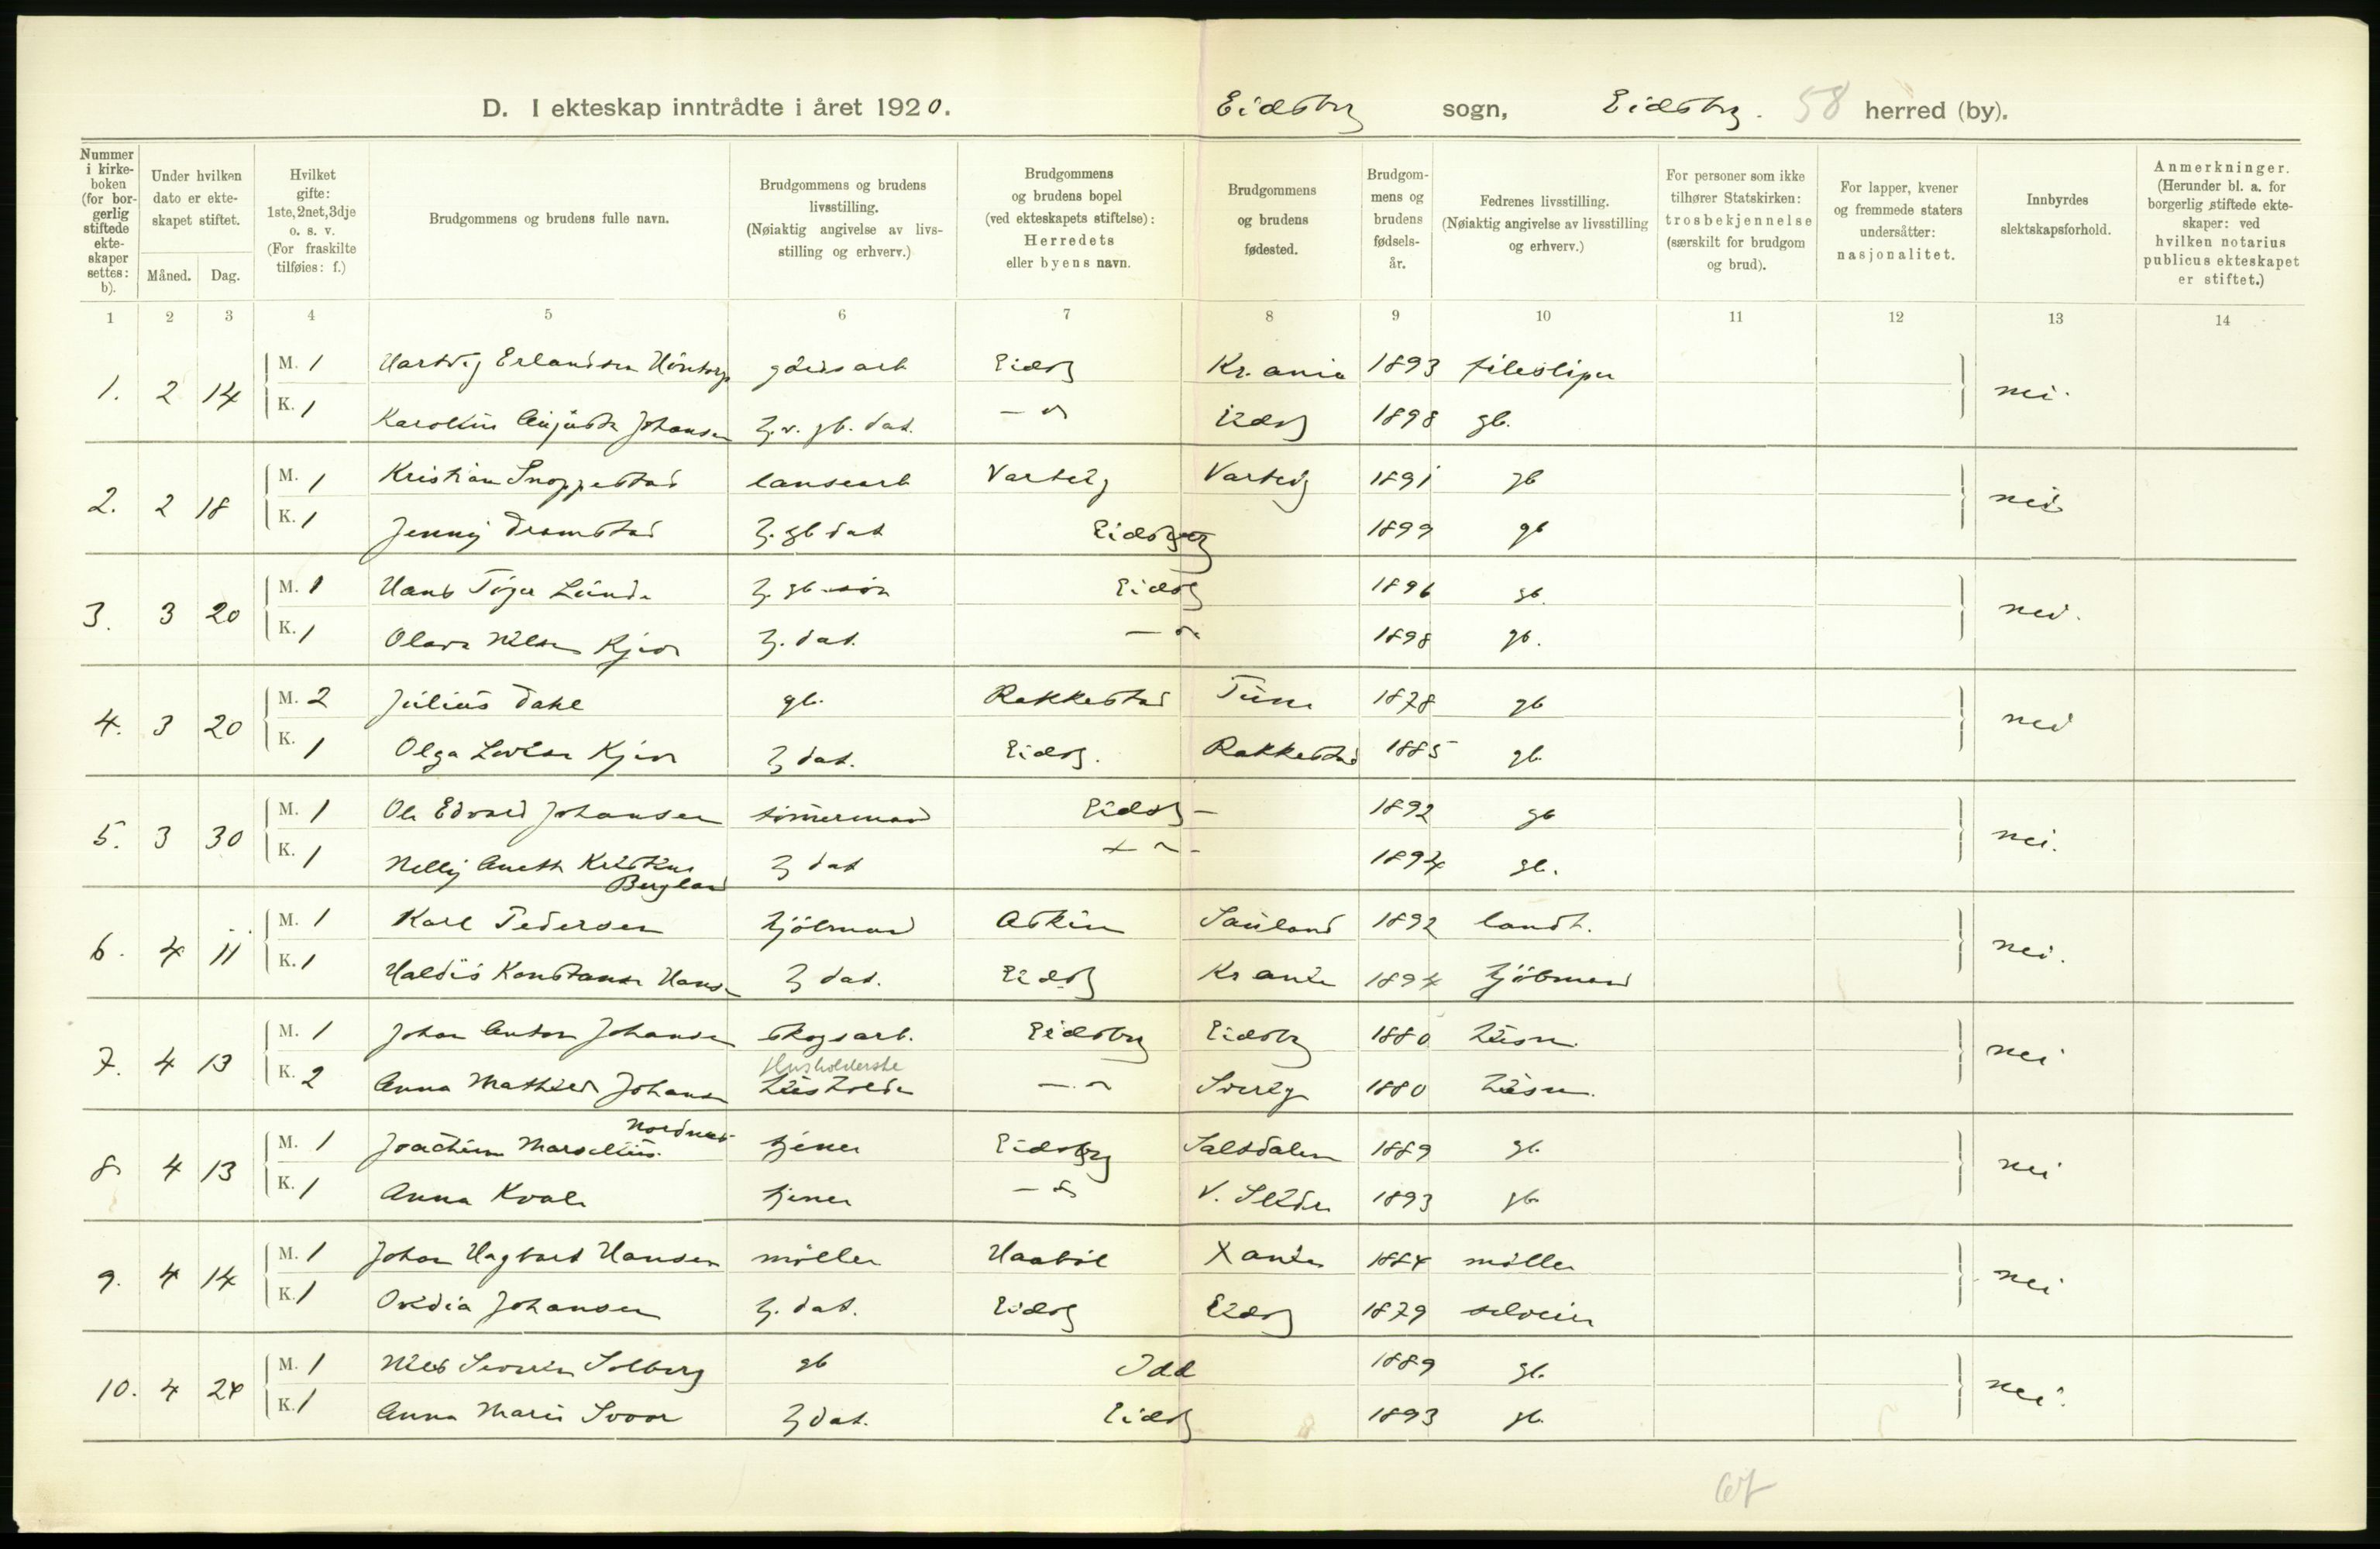 D. I ekteskap inntrådte i året 1920. Eidsbrg sogn, Eidsbrg. 58 herred (by).
Nummer i kirke-boken (for bor-gerlig stiftede ekte-skaper settes: b).
Under hvilken dato er ekte-skapet stiftet.
Måned. Dag.
Hvilket gifte: 1ste, 2net, 3dje o. s. v. (For fraskilte tilføies: f.)
Brudgommens og brudens fulle navn.
Brudgommens og brudens livsstilling. (Nøiaktig angivelse av livs-stilling og erhverv.)
Brudgommens og brudens bopel (ved ekteskapets stiftelse): Herredets eller byens navn.
Brudgommens og brudens fødested.
Brudgom-mens og brudens fødsels-år.
Fedrenes livsstilling. (Nøiaktig angivelse av livsstilling og erhverv.)
For personer som ikke tilhører Statskirken: trosbekjennelse (særskilt for brudgom og brud).
For lapper, kvener og fremmede staters undersåtter: nasjonalitet.
Innbyrdes slektskapsforhold.
Anmerkninger. (Herunder bl. a. for borgerlig stiftede ekte-skaper: ved hvilken notarius publicus ekteskapet er stiftet.)
1 2 3 4 5 6 7 8 9 10 11 12 13 14
1. 2 14 M. 1 Hartvig Erlandsen gårdsarb Eidsb Kr.ania 1893 filesliper nei.
K. 1 Karoline Augusta Johansen gb. dat. — " Eidsb 1898 gb.
2. 2 18 M. 1 Kristian Snoppestad Varteig Varteig 1891 gb nei
K. 1 Jenny Dramstad gb dat Eidsberg 1899 gb
3. 3 20 M. 1 Hans Lunde gb. søn Eidsb 1896 gb. nei.
K. 1 Olava Nilsen Kjær dat. — " 1898 gb.
4. 3 20 M. 2 Julius Dahl gb. Rakkestad Tune 1878 gb nei
K. 1 Olga Lovise Kjær dat. Eidsb. Rakkestad 1885 gb.
5. 3 30 M. 1 Ole Edvard Johansen tømmermand Eidsb — 1892 gb nei.
K. 1 Nelly Anette Kristine Bergland dat — " — 1894 gb.
6. 4 11 M. 1 Karl Pedersen kjöbmand Askim Sauland 1892 landh. nei.
K. 1 Haldis Konstanse Hansen dat. Eidsb Kr ania 1894 kjöbmand
7. 4 13 M. 1 Johan Anton Johansen skogsarb. Eidsbrg Eidsbrg 1880 husm. nei
Husholderske
K. 2 Anna Mathilde Johansen husholder — " Sverig 1880 husm.
8 4 13 M. 1 Joachim Marselius Nordnes tjener Eidsbrg Saltdalen 1889 gb. nei
K. 1 Anna Kvale tjener — " V. Slidre 1893 gb
9. 4 14 M. 1 Johan Hagbart Hansen møller Haabøl X ania 1884 møller nei
K. 1 Ovidia Johansen dat. Eidsb Eidsb 1879 selveier
10. 4 24 M. 1 Nils Severin Solberg gb Idd 1889 gb. nei.
K. 1 Anna Marie Svoor dat. Eidsb 1893 gb.